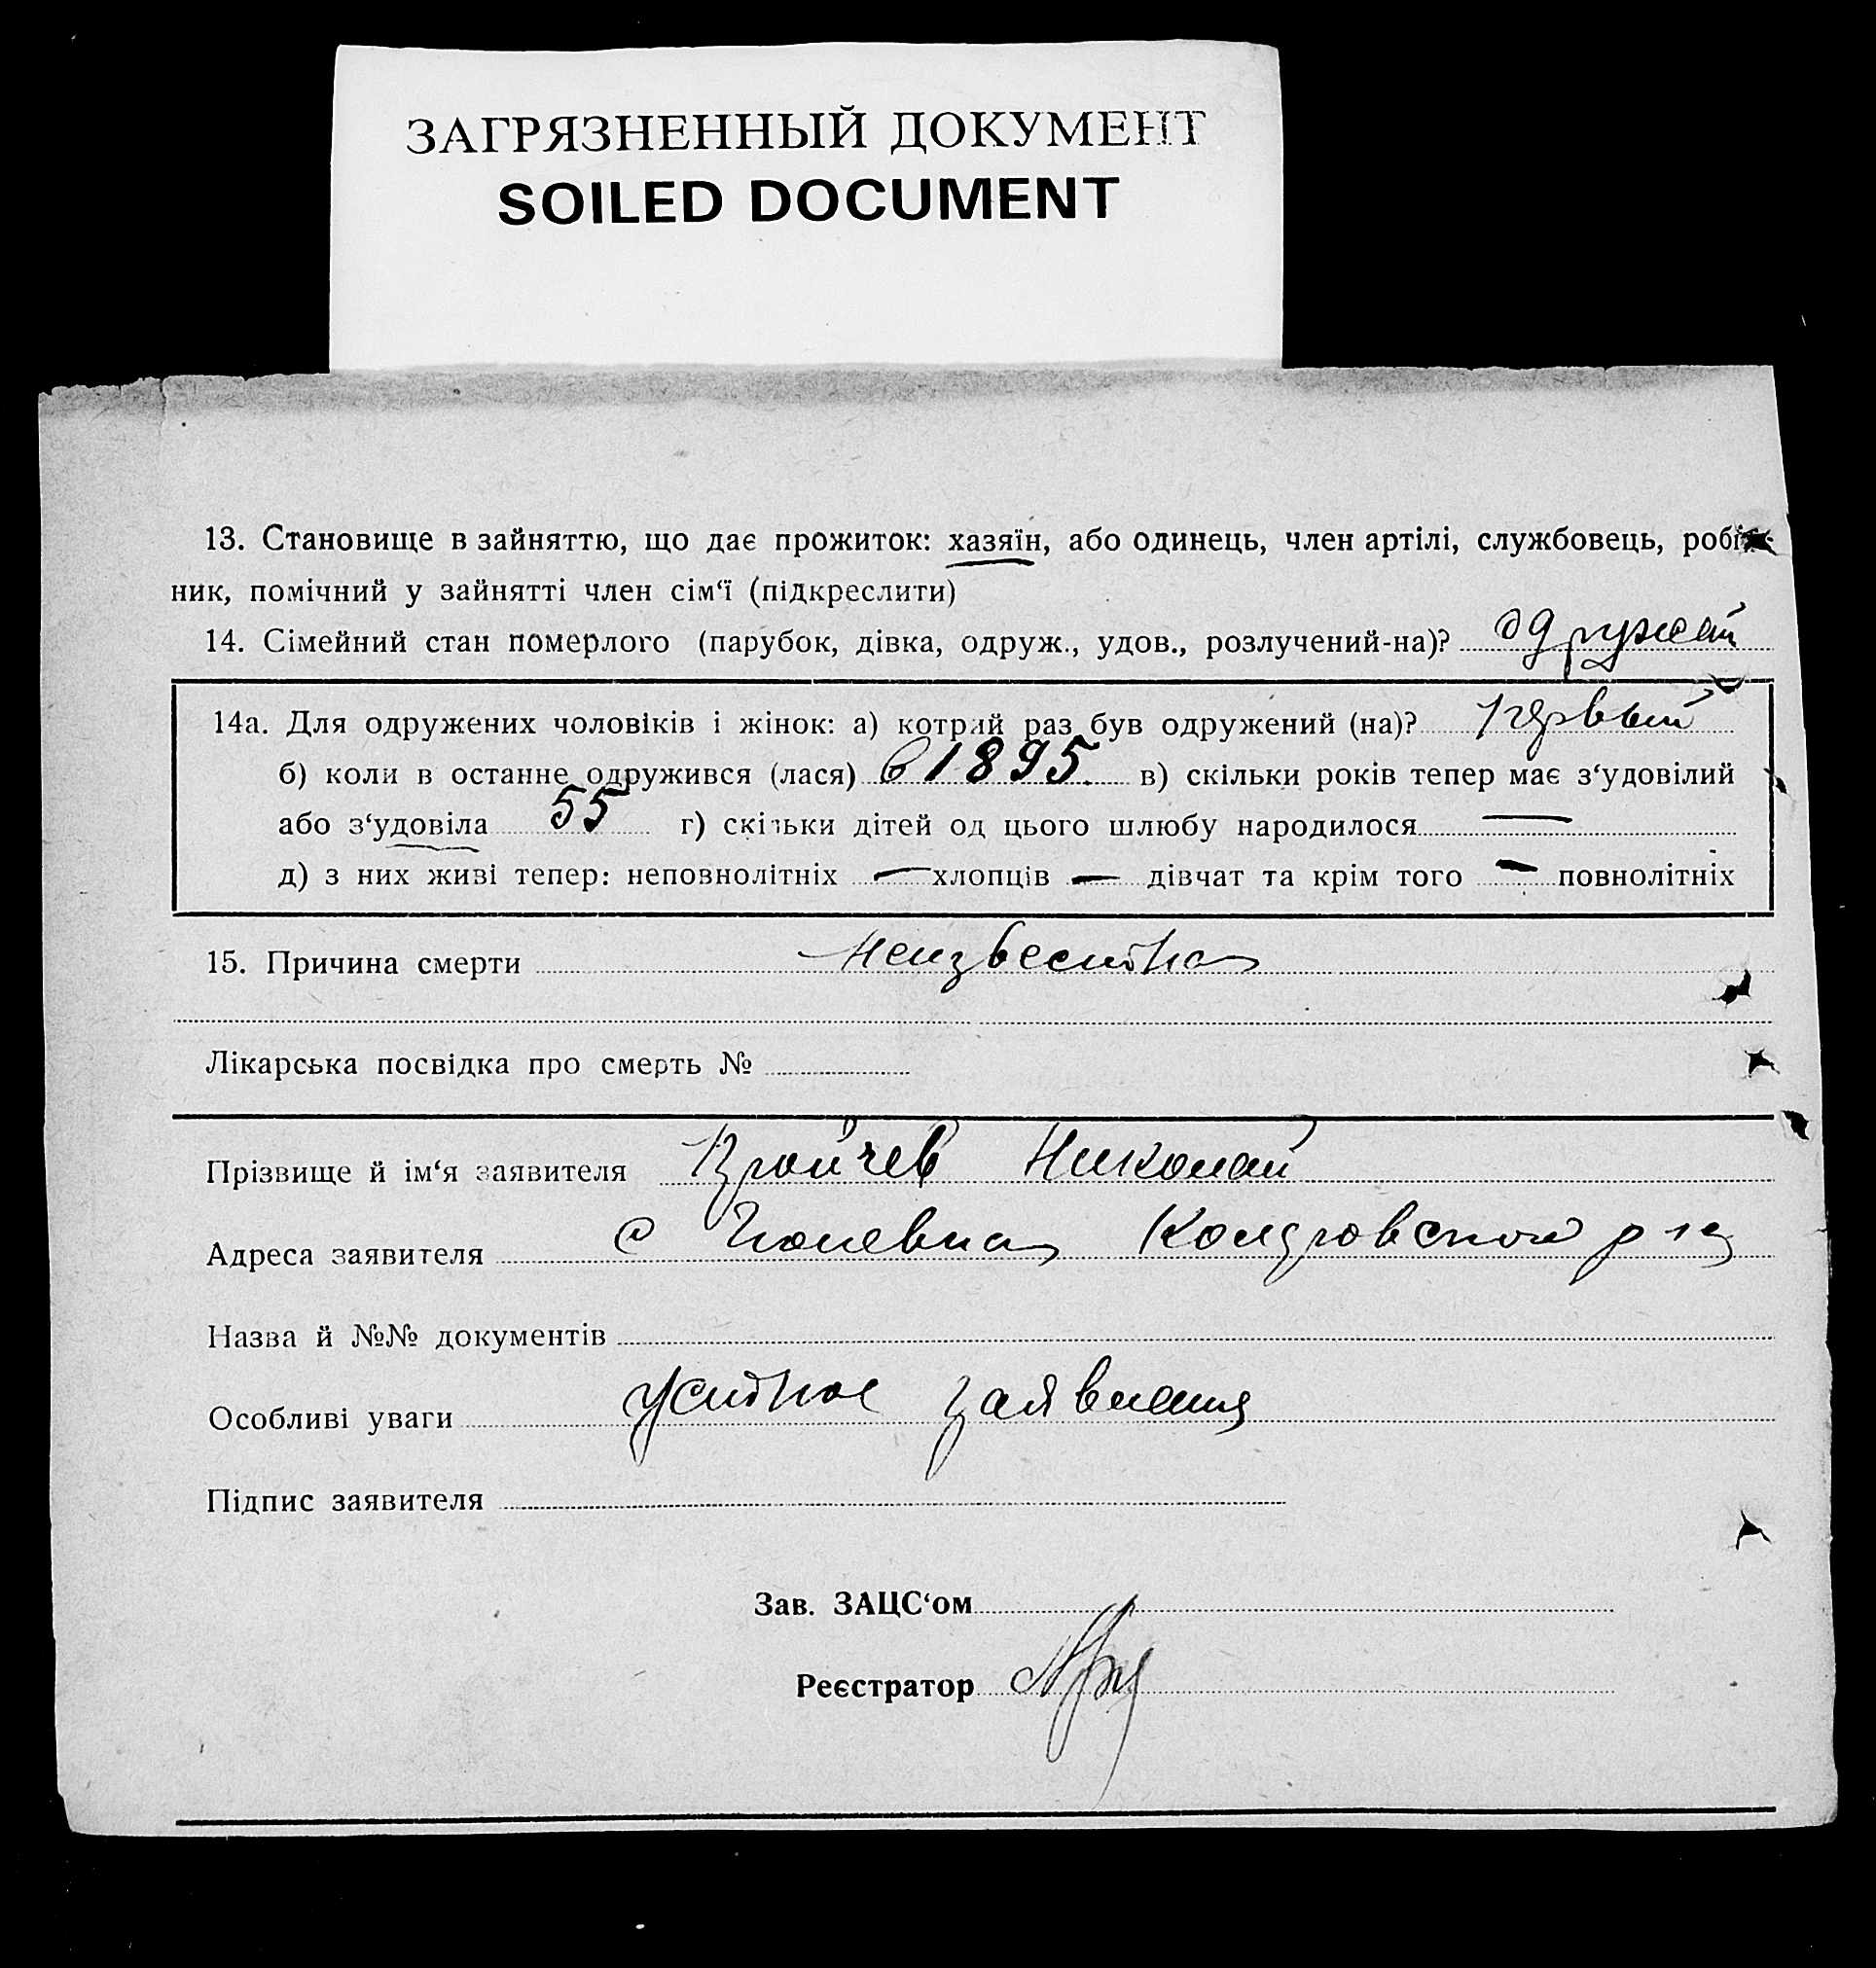 ЗАГРЯЗНЕННЫЙ ДОКУМЕНТ
SOILED DOCUMENT
13. Становище в зайняттю, що дає прожиток: хазяїн, або одинець, член артілі, службовець, робіт-
ник, помічний у зайнятті член сім‘ї (підкреслити)
14. Сімейний стан померлого (парубок, дівка, одруж., удов., розлучений-на)?
14а. Для одружених чоловіків і жінок: а) котрий раз був одружений (на)? первый
б) коли в останнє одружився (лася) в 1895 в) скільки років тепер має з‘удовілий
або з‘удовіла 55 г) скільки дітей од цього шлюбу народилося —
д) з них живі тепер: неповнолітніх — хлопців — дівчат та крім того — повнолітніх
15. Причина смерти неизвестна
Лікарська посвідка про смерть №
Прізвище й ім‘я заявителя Николай
Адреса заявителя с
Назва й №№ документів
Особливі уваги устное
Підпис заявителя
Зав. ЗАЦС‘ом
Реєстратор